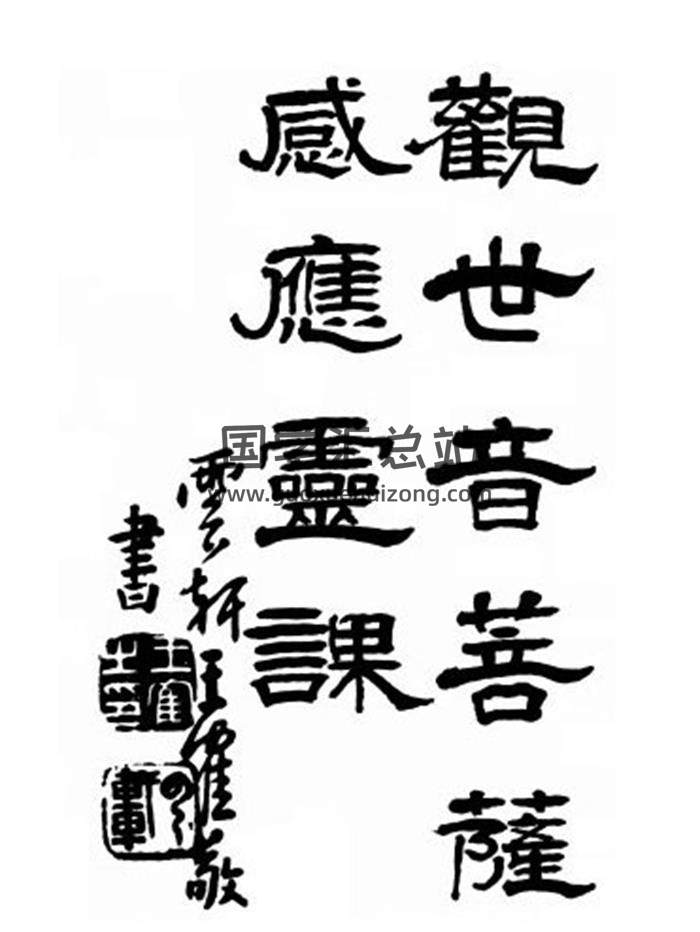 觀世音菩薩
感應靈課
雲軒王霍敬
書
国学汇总站
www.guoxuehuizong.com